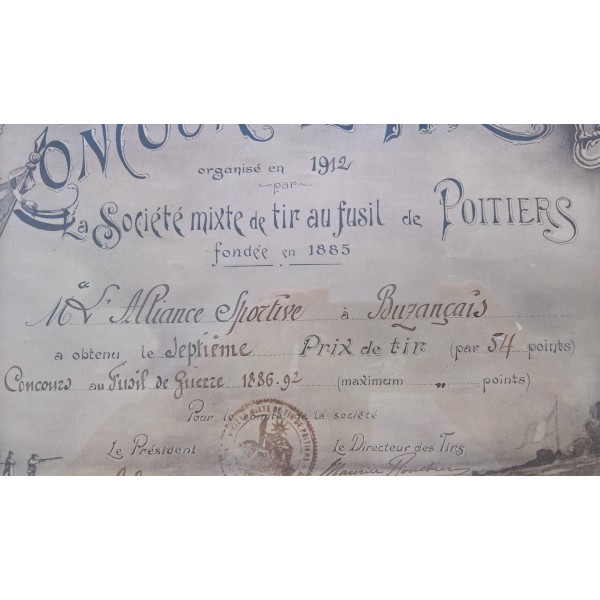 CONCOURS DE TIR
organisé en 1912
par
La Société mixte de tir au fusil de POITIERS
fondée en 1885
M "L'Alliance Sportive à Buzançais
a obtenu le Septième Prix de tir (par 54 points)
Concours au Fusil de Guerre 1886-92 (maximum „ points)
Pour le comité de la société
MIXTE DE TIR DE POITIERS
Le Président Le Directeur des Tirs
Maurice